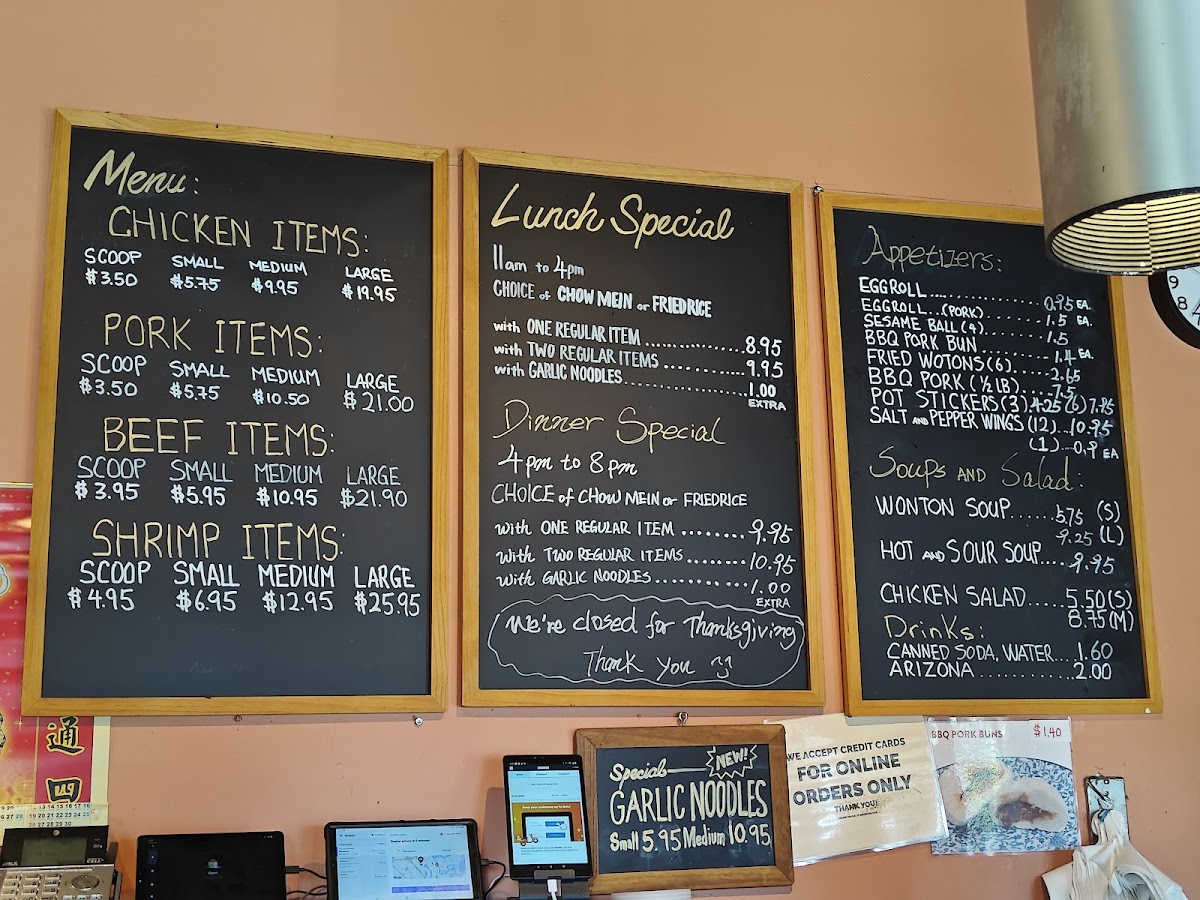 Menu:
CHICKEN ITEMS:
SCOOP SMALL MEDIUM LARGE
$3.50 $5.75 $9.95 $19.95
PORK ITEMS:
SCOOP SMALL MEDIUM LARGE
$3.50 $5.75 $10.50 $21.00
BEEF ITEMS:
SCOOP SMALL MEDIUM LARGE
$3.95 $5.95 $10.95 $21.90
SHRIMP ITEMS:
SCOOP SMALL MEDIUM LARGE
$4.95 $6.95 $12.95 $25.95
Lunch Special
11am to 4pm
CHOICE of CHOW MEIN or FRIEDRICE
with ONE REGULAR ITEM ................8.95
with TWO REGULAR ITEMS ............9.95
with GARLIC NOODLES...................1.00
EXTRA
Dinner Special
4pm to 8pm
CHOICE of CHOW MEIN or FRIEDRICE
with ONE REGULAR ITEM ........9.95
with TWO REGULAR ITEMS ........10.95
with GARLIC NOODLES............1.00
EXTRA
We're closed for Thanksgiving
Thank you
Appetizers:
EGGROLL.................0.95 EA.
EGGROLL..(PORK)........1.5 EA.
SESAME BALL (4).........1.5
BBQ PORK BUN..........1.4 EA.
FRIED WOTONS (6).....2.65
BBQ PORK (½ LB).....7.5
POT STICKERS (3).4.25 (6) 7.95
SALT AND PEPPER WINGS (12)..10.95
(1)..0.9 EA
Soups AND Salad:
WONTON SOUP......5.75 (S)
9.25 (L)
HOT AND SOUR SOUP....9.95
CHICKEN SALAD.....5.50 (S)
8.75 (M)
Drinks:
CANNED SODA, WATER...1.60
ARIZONA............2.00
通
四
Special NEW!
GARLIC NOODLES
Small 5.95 Medium 10.95
WE ACCEPT CREDIT CARDS
FOR ONLINE
ORDERS ONLY
THANK YOU!
BBQ PORK BUNS $1.40